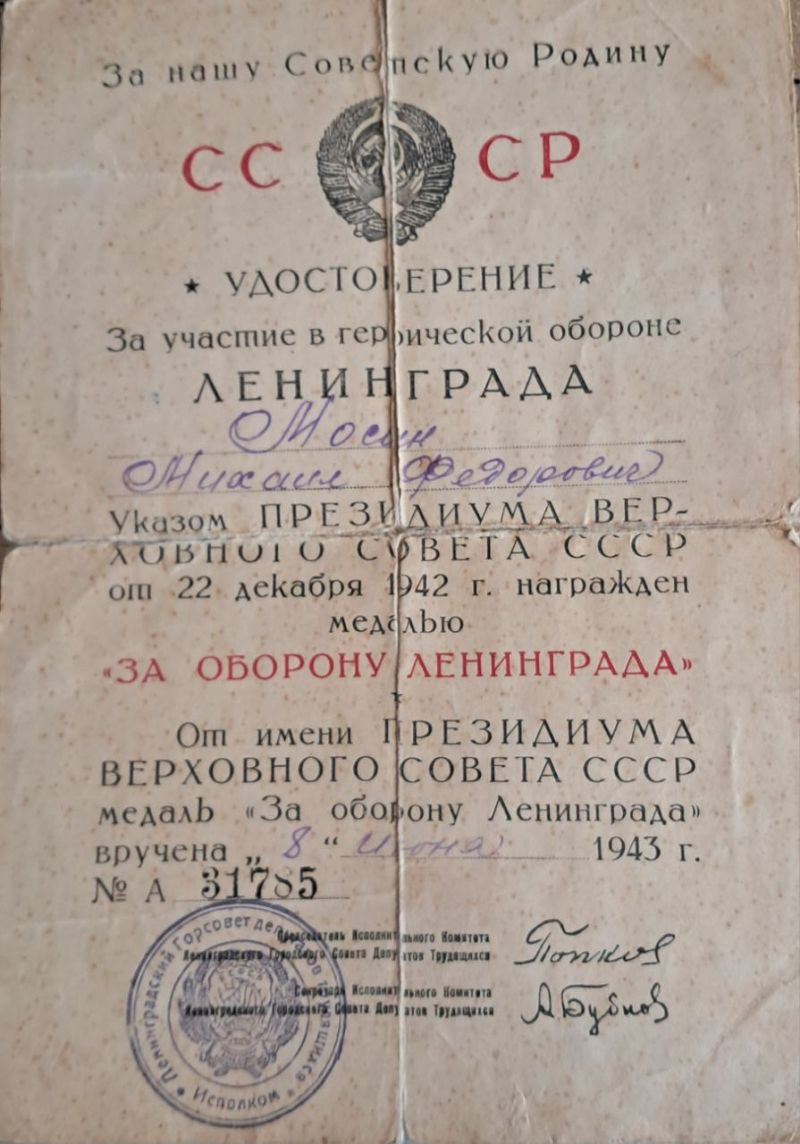 За нашу Советскую Родину
СССР
★ УДОСТОВЕРЕНИЕ ★
За участие в героической обороне
ЛЕНИНГРАДА
Мосин
Михаил Федорович
Указом ПРЕЗИДИУМА ВЕР-
ХОВНОГО СОВЕТА СССР
от 22 декабря 1942 г. награжден
медалью
«ЗА ОБОРОНУ ЛЕНИНГРАДА»
От имени ПРЕЗИДИУМА
ВЕРХОВНОГО СОВЕТА СССР
медаль «За оборону Ленинграда»
вручена „ 8 “ июня 1943 г.
№ А 31785
Председатель Исполнительного Комитета
Ленинградского Городского Совета Депутатов Трудящихся
Попков
Секретарь Исполнительного Комитета
Ленинградского Городского Совета Депутатов Трудящихся
А Бубнов
Ленинградский Горсовет
Исполком